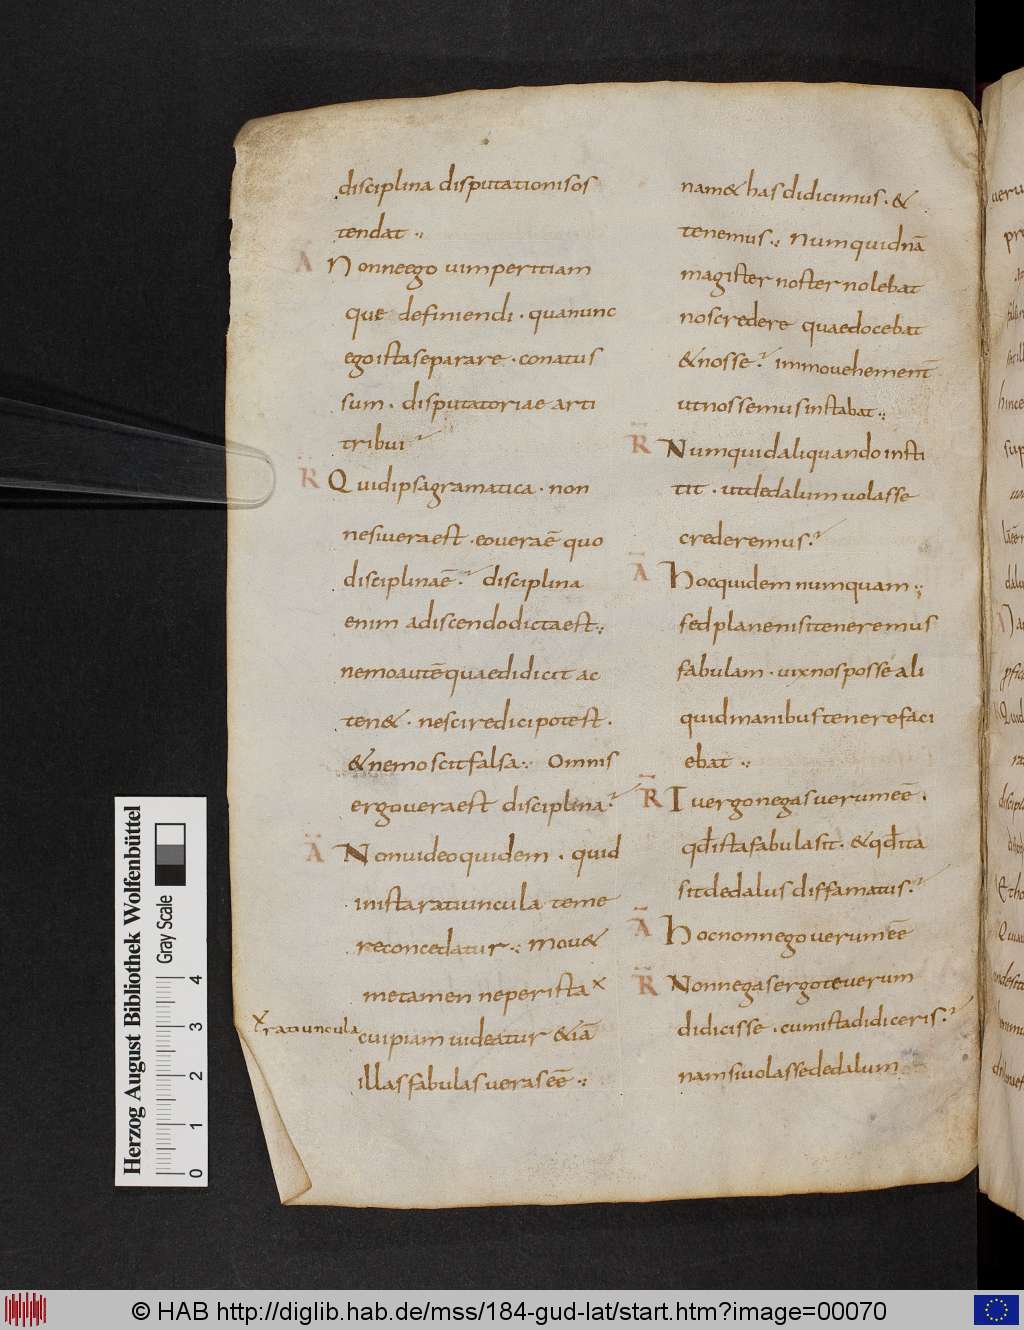 disciplina disputationis os
tendat
A Nonne ego uim peritiam
que definiendi · qua nunc
ego ista separare · conatus
sum · disputatoriae arti
tribui
R Quid ipsa gramatica · non
nesi uera est · eo uera ē quo
disciplina ē? disciplina
enim a discendo dicta est
nemo autē quae didicit ac
ten& · nescire dici potest ·
& nemo scit falsa Omnis
ergo uera est disciplina?
A Non uideo quidem · quid
in ista ratiuncula teme
re concedatur Mou&
me tamen ne per ista x
x ratiuncula
cuipiam uideatur & iā
illas fabulas ueras eē
nam & has didicimus · &
tenemus Num quidnā
magister noster nolebat
nos credere quae docebat
& nosse? immo uehement
ut nossemus instabat
R Numquid aliquando insti
tit · ut dedalum uolasse
crederemus?
A Hoc quidem numquam
sed plane nisi teneremus
fabulam · uix nos posse ali
quid manibus tenere faci
ebat
R Tu ergo negas uerum eē ·
qđ ista fabula sit · & qđ ita
sit dedalus diffamatus?
A Hoc non nego uerum eē
R Non negas ergo te uerum
didicisse · cum ista didiceris?
nam si uolasse dedalum
Herzog August Bibliothek Wolfenbüttel
Gray Scale
0 1 2 3 4
© HAB http://diglib.hab.de/mss/184-gud-lat/start.htm?image=00070